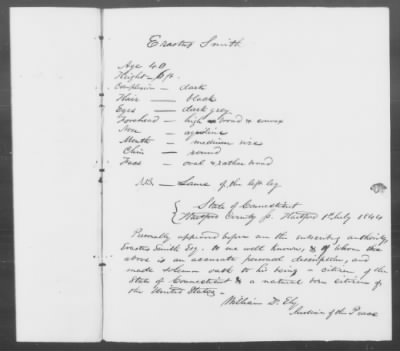 Erastus Smith
Age 40
Height - 6 ft.
Complexion - dark
Hair — black
Eyes — dark grey
Forehead - high broad & convex
Nose - aquiline
Mouth - medium size
Chin - round
Face - oval & rather broad
NB. — Lame of the left leg
State of Connecticut
Hartford County ss. Hartford 1st July 1844
Personally appeared before me the subscribing authority,
Erastus Smith Esq. to me well known, & of whom the
above is an accurate personal description, and
made solemn oath to his being a citizen of the
State of Connecticut & a natural born citizen of
the United States -
William D. Ely
Justice of the Peace